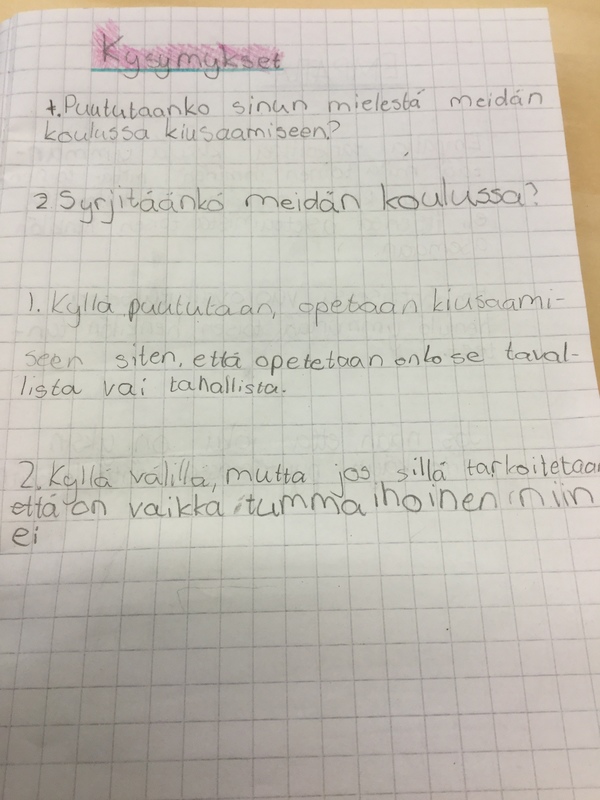 Kysymykset
1. Puututaanko sinun mielestä meidän
koulussa kiusaamiseen?
2 Syrjitäänkö meidän koulussa?
1. Kyllä puututaan, opetaan kiusaami-
seen siten, että opetetaan onko se taval-
lista vai tahallista.
2. Kyllä välillä, mutta jos sillä tarkoitetaan
että on vaikka tumma ihoinen niin
ei